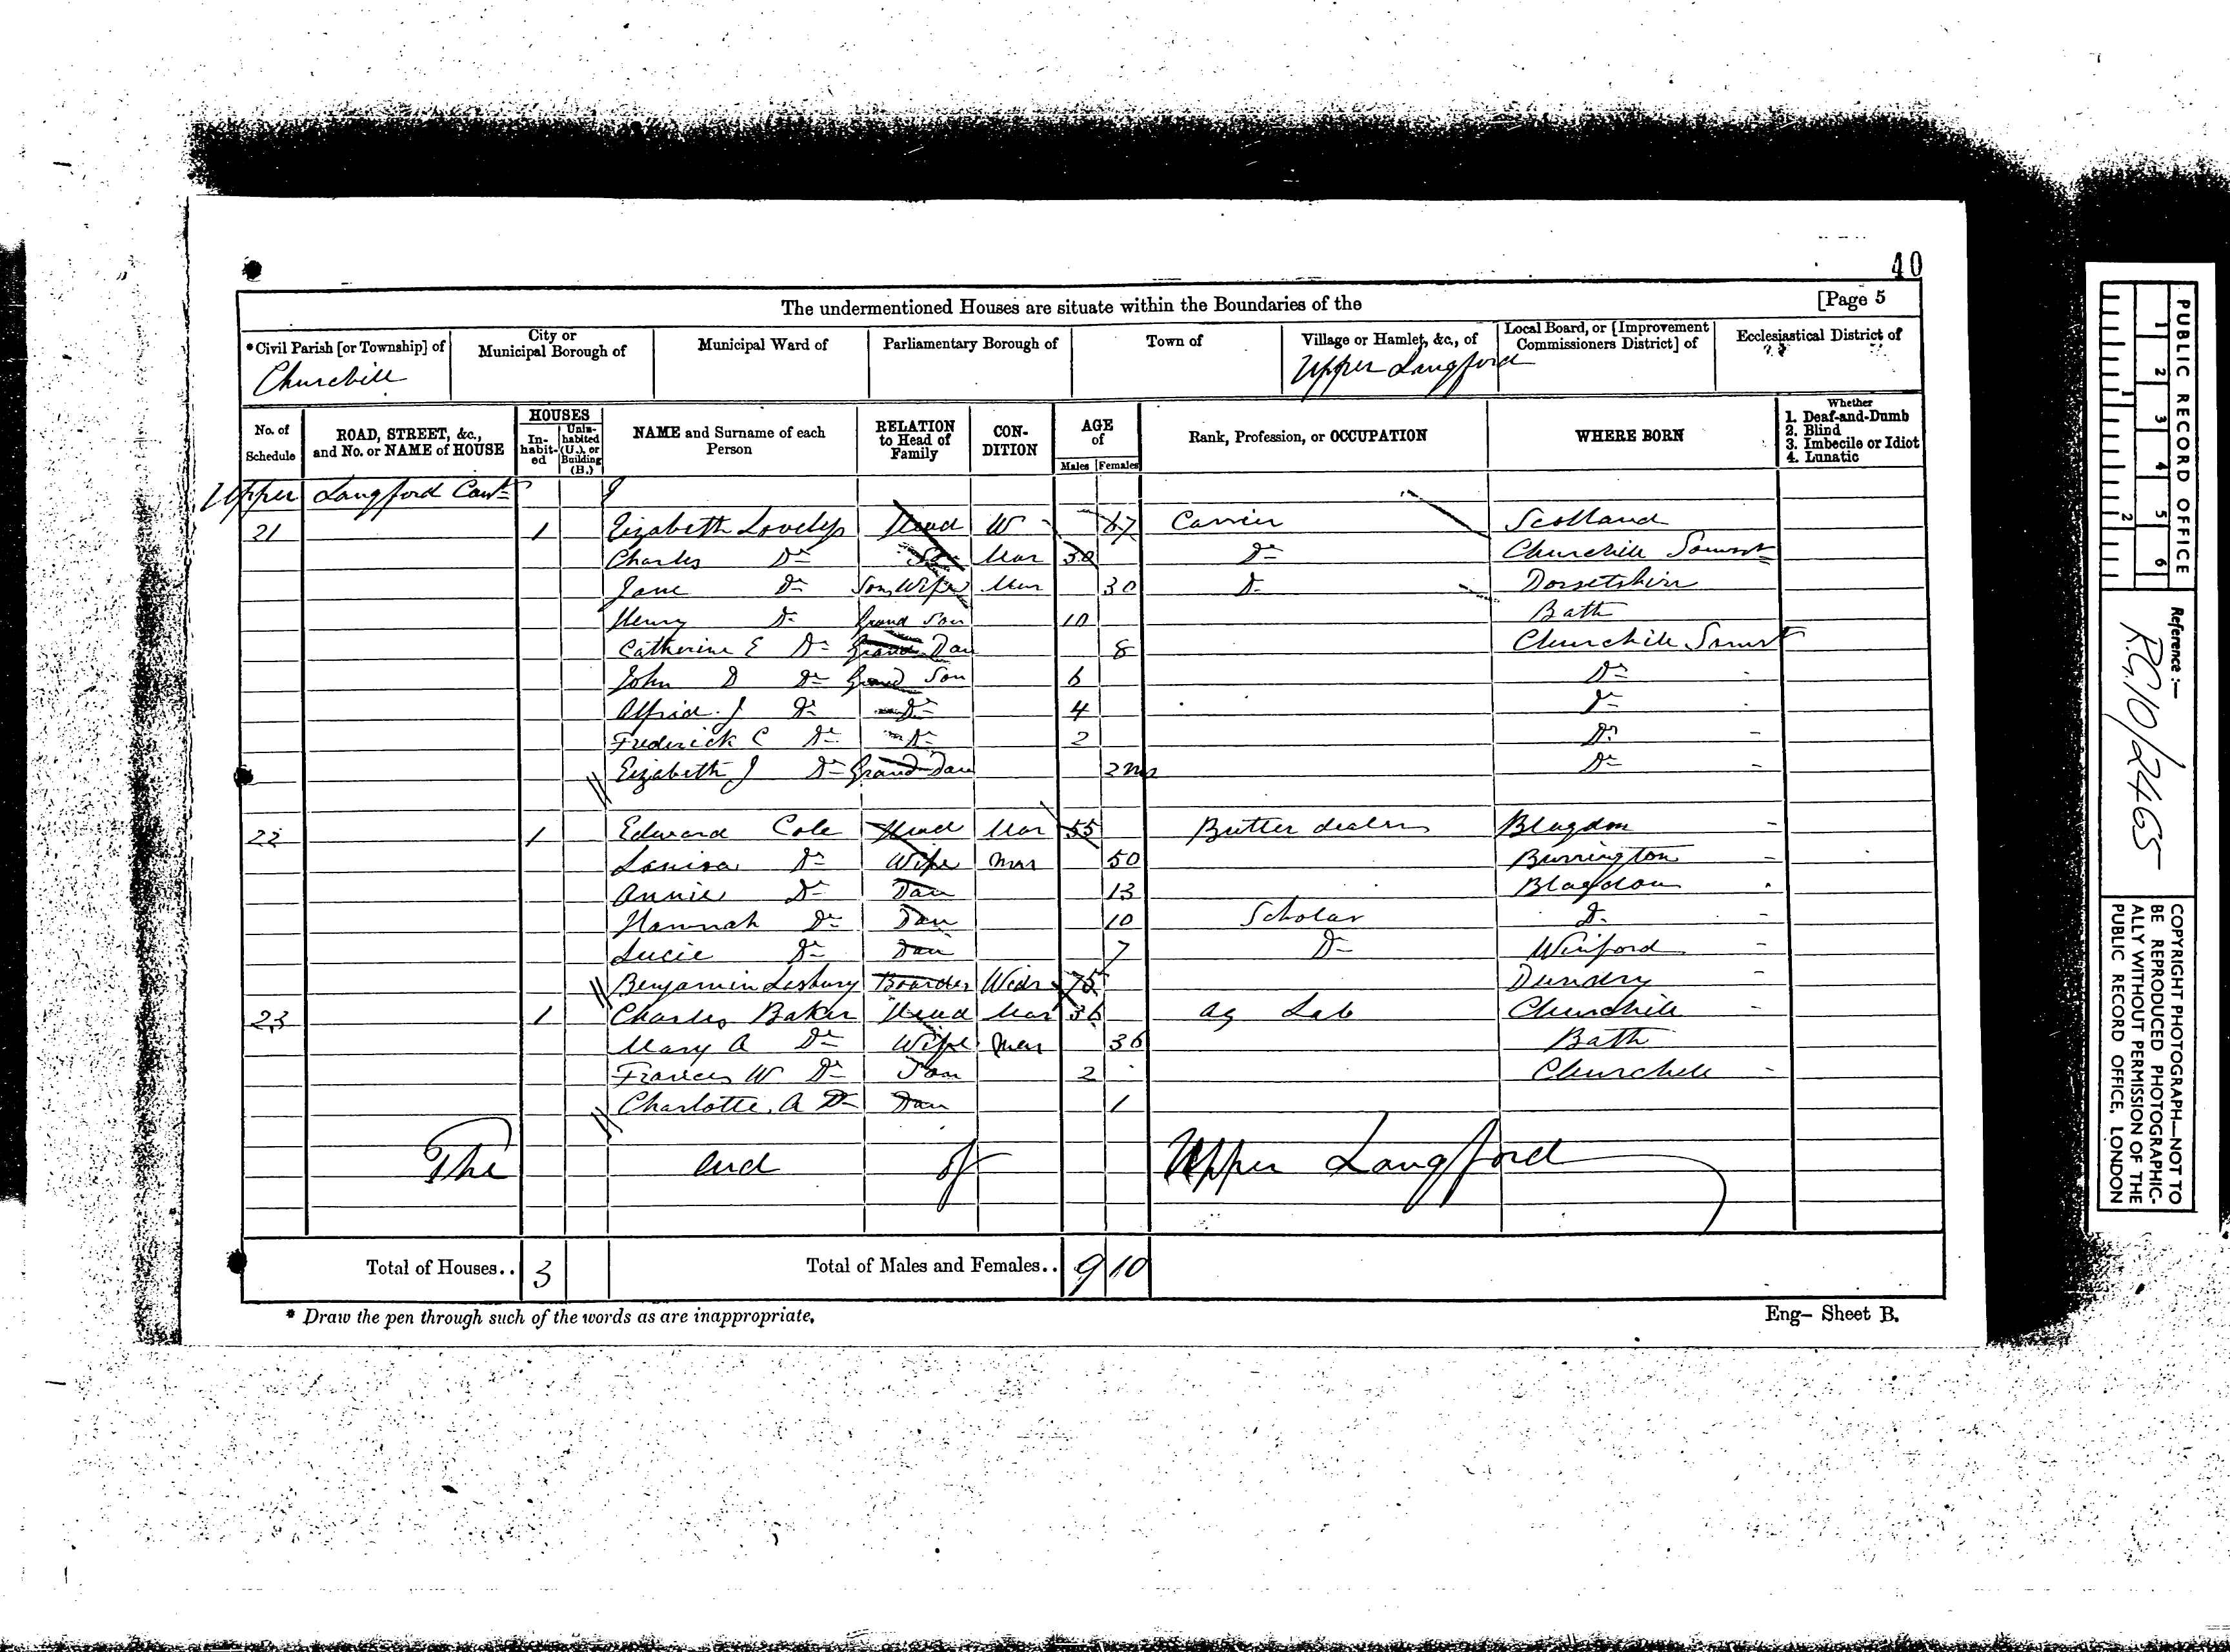 40
The undermentioned Houses are situate within the Boundaries of the [Page 5
*Civil Parish [or Township] of City or Municipal Borough of Municipal Ward of Parliamentary Borough of Town of Village or Hamlet, &c., of Local Board, or [Improvement Commissioners District] of Ecclesiastical District of
Churchill Upper Langford
No. of Schedule ROAD, STREET, &c., and No. or NAME of HOUSE HOUSES In-habit-ed Unin-habited (U.), or Building (B.) NAME and Surname of each Person RELATION to Head of Family CON-DITION AGE of Males Females Rank, Profession, or OCCUPATION WHERE BORN Whether 1. Deaf-and-Dumb 2. Blind 3. Imbecile or Idiot 4. Lunatic
Upper Langford Cont
21 1 Elizabeth Head W 67 Carrier Scotland
Charles Do Son Mar 30 Do Churchill Somerst
Jane Do Sons Wife Mar 30 Do Dorsetshire
Henry Do Grand Son 10 Bath
Catherine E Do Grand Dau 8 Churchill Somrst
John D Do Grand Son 6 Do
Alfred J Do Do 4 Do
Frederick C Do Do 2 Do
Elizabeth J Do Grand Dau 2 mo Do
22 1 Edward Cole Head Mar 55 Butter dealer Blagdon
Louisa Do Wife Mar 50 Burrington
Annie Do Dau 13 Blagdon
Hannah Do Dau 10 Scholar Do
Lucie Do Dau 7 Do Winford
Benjamin Boarder Widr 75 Dundry
23 1 Charles Baker Head Mar 36 Ag Lab Churchill
Mary A Do Wife Mar 36 Bath
Frances W Do Son 2 Churchill
Charlotte A Do Dau 1
The end of Upper Langford
Total of Houses.. 3 Total of Males and Females.. 9 10
* Draw the pen through such of the words as are inappropriate. Eng– Sheet B.
PUBLIC RECORD OFFICE
1 2 3 4 5 6
1 2
Reference :—
R.G.10/2465
COPYRIGHT PHOTOGRAPH—NOT TO
BE REPRODUCED PHOTOGRAPHIC-
ALLY WITHOUT PERMISSION OF THE
PUBLIC RECORD OFFICE, LONDON